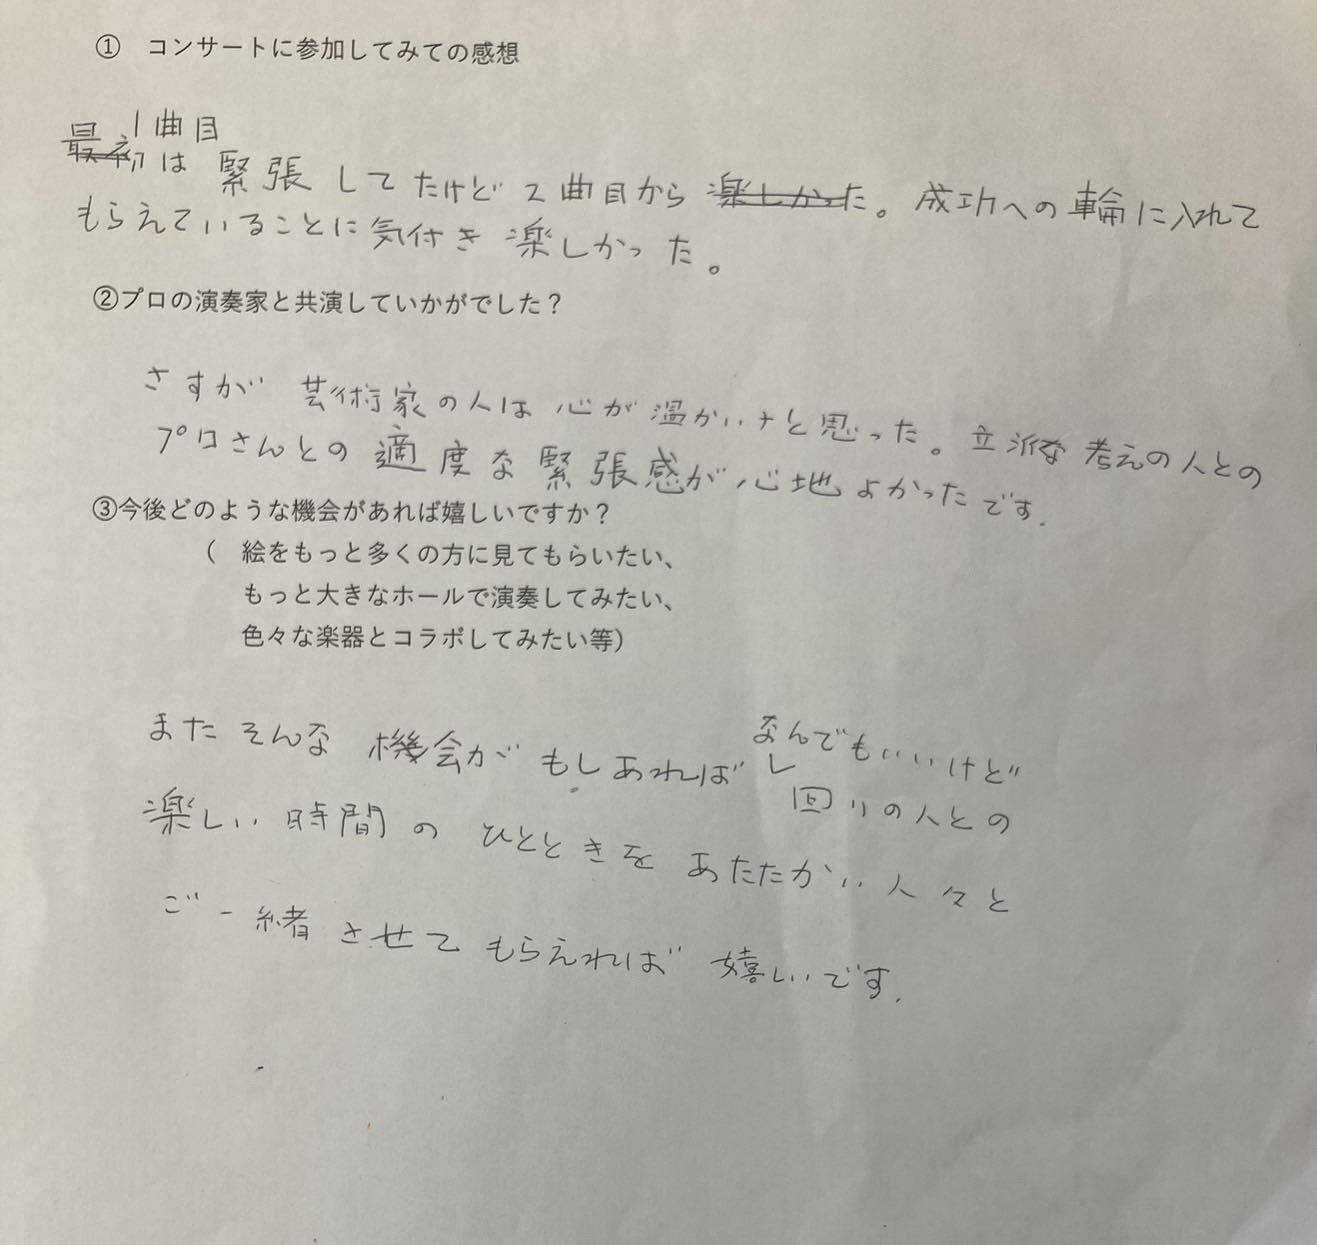 ① コンサートに参加してみての感想
1曲目
最初は緊張してたけど2曲目から楽しかった。成功への輪に入れて
もらえていることに気付き楽しかった。
②プロの演奏家と共演していかがでした？
さすが芸術家の人は心が温かいナと思った。立派な考えの人との
プロさんとの適度な緊張感が心地よかったです.
③今後どのような機会があれば嬉しいですか？
（ 絵をもっと多くの方に見てもらいたい、
もっと大きなホールで演奏してみたい、
色々な楽器とコラボしてみたい等）
またそんな機会がもしあればなんでもいいけど
回りの人との
楽しい時間のひとときをあたたかい人々と
ご一緒させてもらえれば嬉しいです.